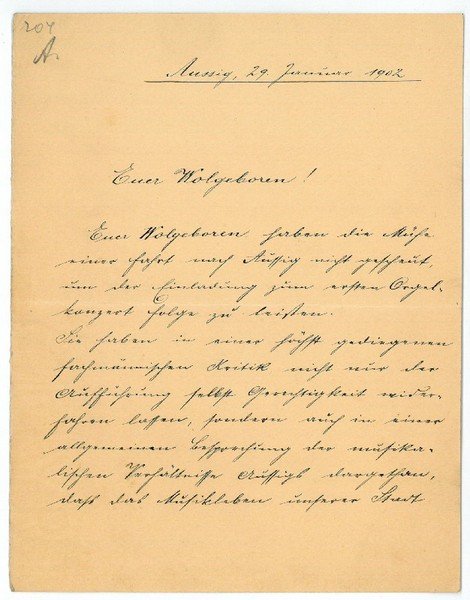 204
A.
Aussig, 29. Januar 1902
Euer Wolgeboren!
Euer Wolgeboren haben die Mühe
einer Fahrt nach Aussig nicht gescheut,
um der Einladung zum ersten Orgel-
konzert Folge zu leisten.
Sie haben in einer höchst gediegenen
fachmännischen Kritik nicht nur der
Aufführung selbst Gerechtigkeit wider-
fahren lassen, sondern auch in einer
allgemeinen Besprechung der musika-
lischen Verhältnisse Aussigs dargethan,
daß das Musikleben unserer Stadt